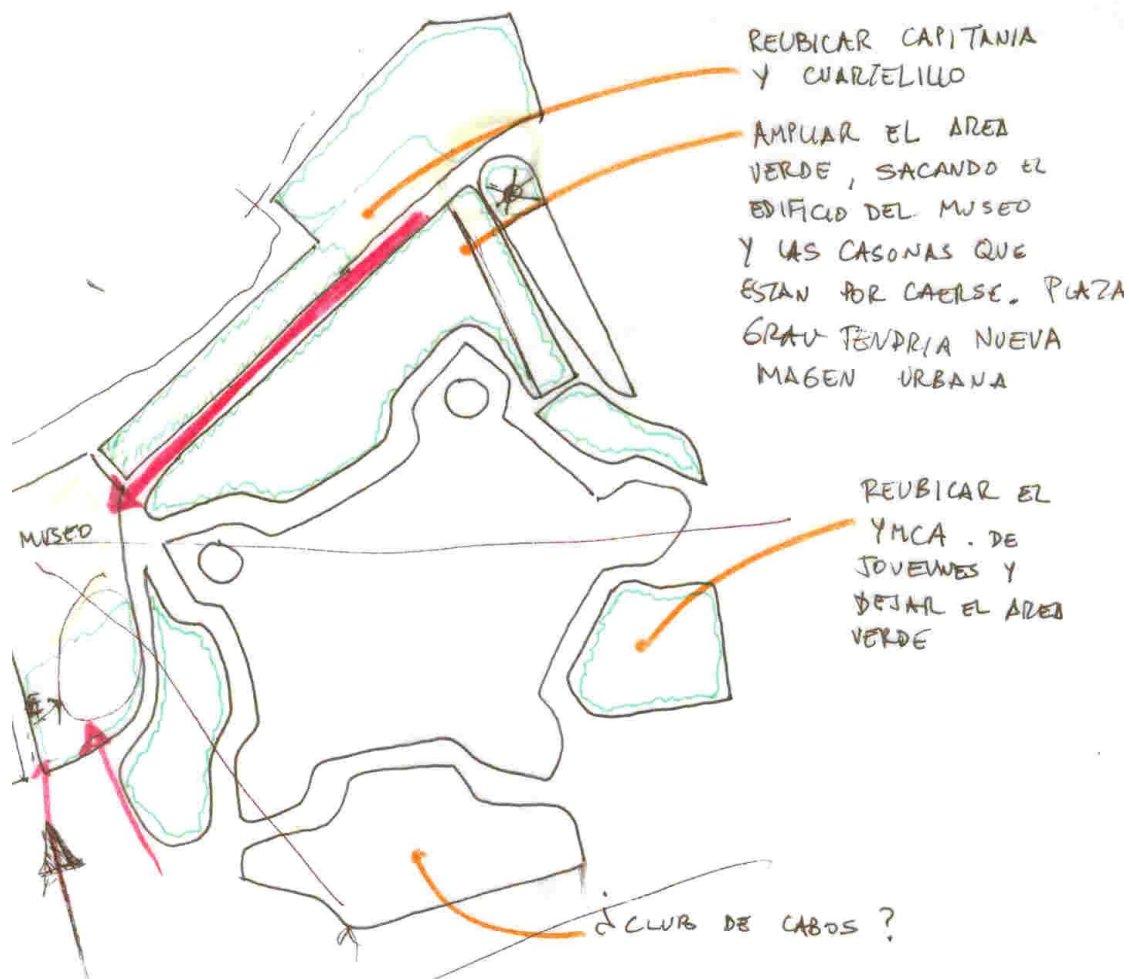 REUBICAR CAPITANIA
Y CUARTELILLO
AMPLIAR EL AREA
VERDE, SACANDO EL
EDIFICIO DEL MUSEO
Y LAS CASONAS QUE
ESTAN POR CAERSE. PLAZA
GRAU TENDRIA NUEVA
IMAGEN URBANA
MUSEO
REUBICAR EL
YMCA. DE
JOVENNES Y
DEJAR EL AREA
VERDE
¿CLUB DE CABOS?